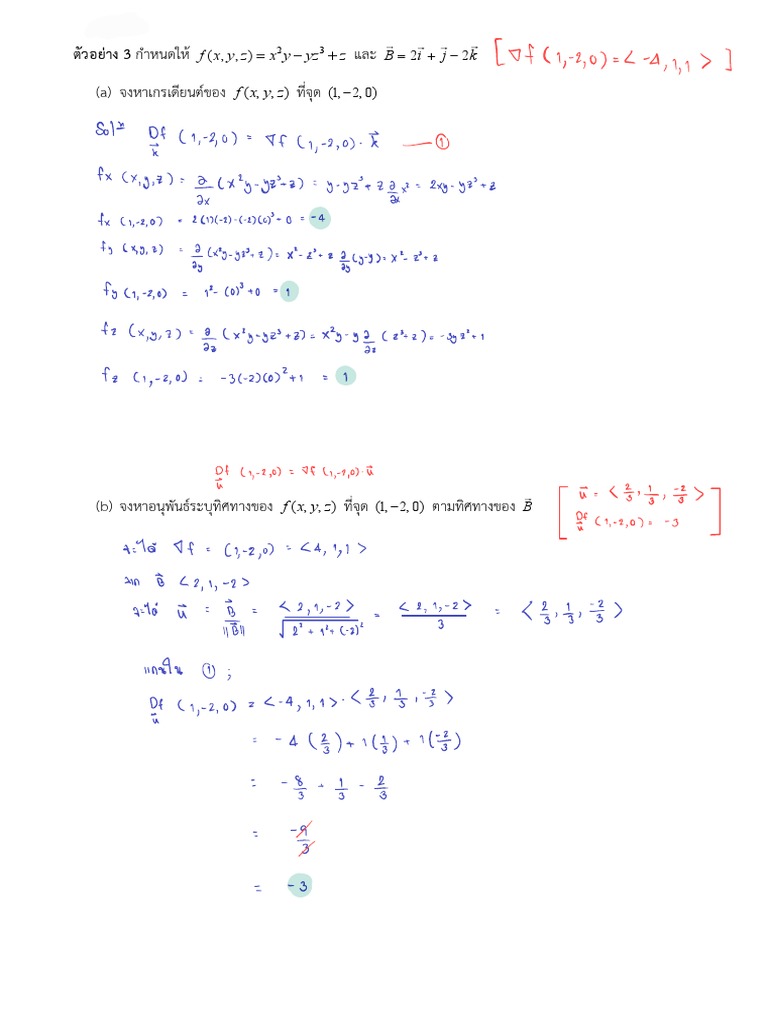 ตัวอย่าง 3 กำหนดให้ f(x,y,z) = x²y − yz³ + z และ B⃗ = 2i⃗ + j⃗ − 2k⃗ [∇f(1,-2,0) = < -4,1,1 >]
(a) จงหาเกรเดียนต์ของ f(x,y,z) ที่จุด (1,−2,0)
Solⁿ D_k⃗ f (1,-2,0) = ∇f (1,-2,0)·k⃗ —— ①
fx (x,y,z) = ∂/∂x (x²y-yz³+z) = y-yz³+z ∂/∂x x² = 2xy-yz³+z
fx (1,-2,0) = 2(1)(-2)-(-2)(0)³+0 = -4
fy (x,y,z) = ∂/∂y (x²y-yz³+z) = x²-z³+z ∂/∂y (y-y) = x²-z³+z
fy (1,-2,0) = 1²-(0)³+0 = 1
fz (x,y,z) = ∂/∂z (x²y-yz³+z) = x²y-y ∂/∂z (z³+z) = -3yz²+1
fz (1,-2,0) = -3(-2)(0)²+1 = 1
D_u⃗ f (1,-2,0) = ∇f (1,-2,0)·u⃗
(b) จงหาอนุพันธ์ระบุทิศทางของ f(x,y,z) ที่จุด (1,−2,0) ตามทิศทางของ B⃗
[u⃗ = < 2/3, 1/3, -2/3 >
D_u⃗ f (1,-2,0) = -3]
จะได้ ∇f = (1,-2,0) = <4,1,1>
จาก B⃗ <2,1,-2>
จะได้ u⃗ = B⃗/||B⃗|| = <2,1,-2>/√(2²+1²+(-2)²) = <2,1,-2>/3 = < 2/3, 1/3, -2/3 >
แทนใน ① ;
D_u⃗ f (1,-2,0) = <-4,1,1>·< 2/3, 1/3, -2/3 >
= -4(2/3)+1(1/3)+1(-2/3)
= -8/3 + 1/3 - 2/3
= -9/3
= -3